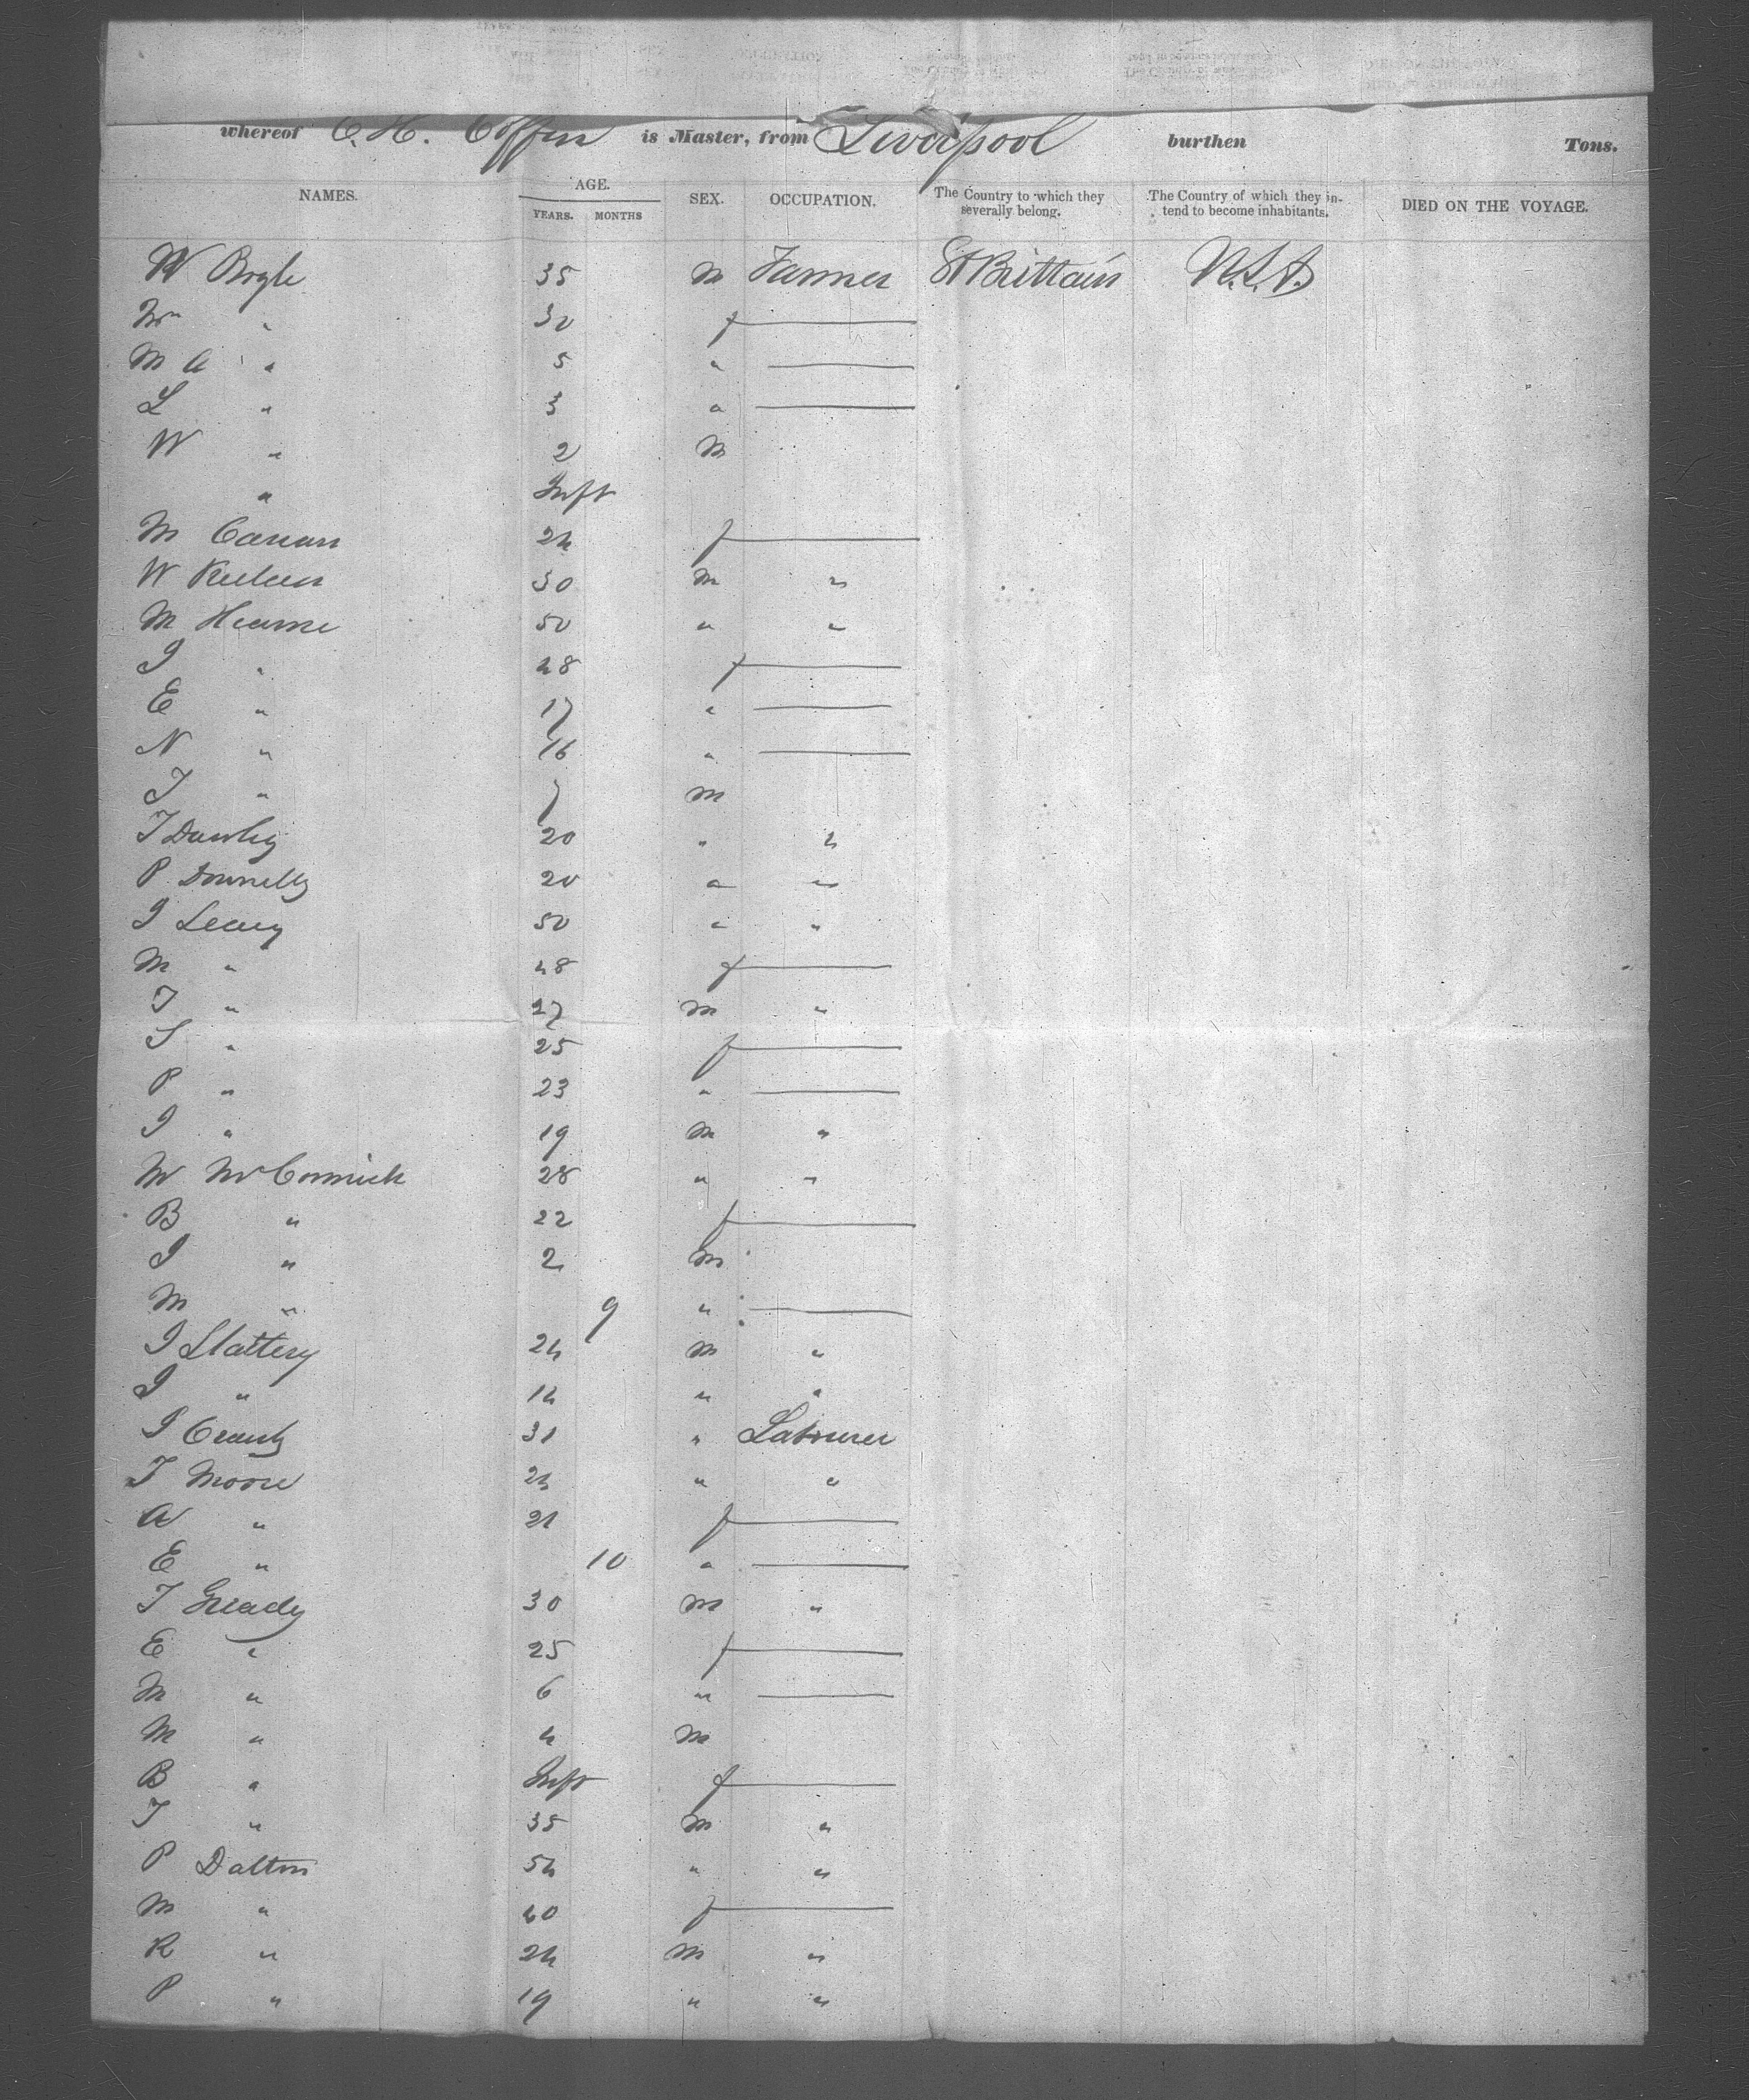 whereof C. H. Coffin is Master, from Liverpool burthen Tons.
NAMES. AGE. YEARS. MONTHS SEX. OCCUPATION. The Country to which they severally belong. The Country of which they intend to become inhabitants. DIED ON THE VOYAGE.
W Bogle 35 m Farmer Gt Brittain U.S.A.
Mrs " 30 f
M A " 5 "
L " 3 "
W " 2 m
" Inft
M Canan 24 f
W 30 m "
M Hearne 50 " "
J " 48 f
E " 17 "
N " 16 "
T " 7 m
T 20 " "
P Donnelly 20 " "
J Leary 50 " "
M " 48 f
T " 27 m "
S " 25 f
P " 23 "
J " 19 m "
W McCormick 28 " "
B " 22 f
J " 2 m
M " 9 "
J Slattery 24 m "
J " 14 " "
J 31 " Labourer
T Moore 24 " "
A " 21 f
E " 10 "
T Gready 30 m "
E " 25 f
M " 6 "
M " 4 m
B " Inft f
T " 35 m "
P Dalton 54 " "
M " 40 f
R " 24 m "
P " 19 " "